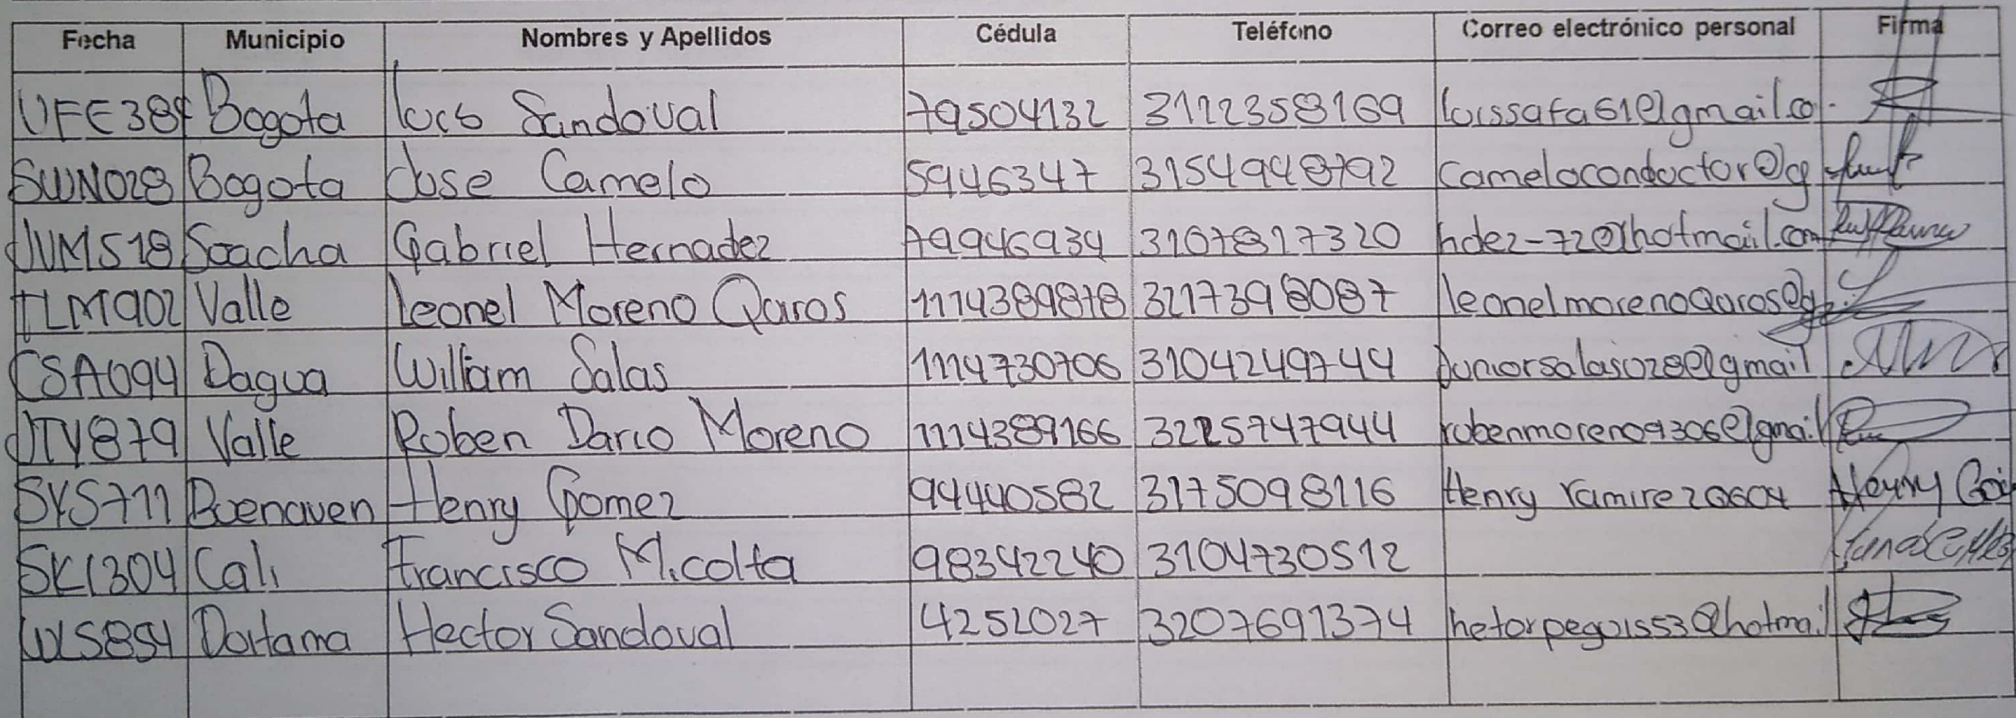 Fecha Municipio Nombres y Apellidos Cédula Teléfono Correo electrónico personal Firma
UFE384 Bogota luis Sandoval 79504132 3112358169 luissafa61@gmail.co.
SWN028 Bogota Jose Camelo 5946347 3154948792 Cameloconductor@g
JVM518 Soacha Gabriel Hernadez 79946934 3107817320 hdez-72@hotmail.com
TLM902 Valle Leonel Moreno Qaros 1114389878 3217398087 leonelmorenoqaros@g
CSA094 Dagua William Salas 1114730706 3104249744 Juniorsalas028@gmail
JTY879 Valle Ruben Dario Moreno 1114389166 3225747944 rubenmoreno9306@gmail
SYS711 Buenaven Henry Gomez 94440582 3175098116 Henry ramirez0604 Henry Gó
SKI304 Cali Francisco Micolta 98342240 3104730512
WLS854 Duitama Hector Sandoval 4252027 3207691374 hetorpeguis53@hotmail